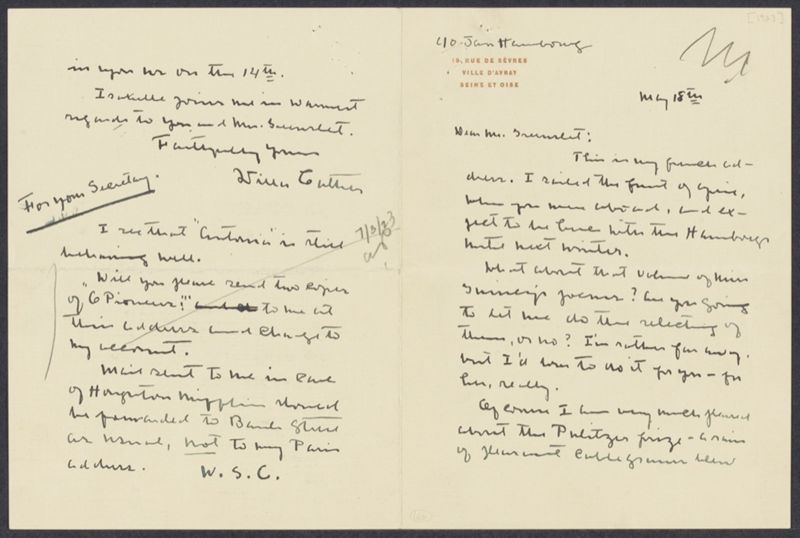 [1923]
c/o Jan Hambourg
19, RUE DE SÈVRES
VILLE D'AVRAY
SEINE ET OISE
May 18th
Dear Mr. Greenslet:
This is my french ad-
dress. I sailed the first of April,
when you were abroad, and ex-
pect to be here with the Hambourgs
until next winter.
What about that volume of Miss
poems? Are you going
to let me do the selecting of
them, or no? I'm rather far away.
but I'd love to do it for you - for
her, really.
Of course I am very much pleased
about the Pulitzer prize - a rain
of pleasant cablegrams blew
in upon me on the 14th.
Isabelle joins me in warmest
regards to you and Mrs. Greenslet.
Faithfully yours
Willa Cather
For your Secretary.
I see that "Antonia" is still
behaving well.
Will you please send two copies
of "O Pioneers!" to me at
this address and charge to
my account.
Mail sent to me in care
of Houghton Mifflin should
be forwarded to Bank Street
as usual, not to my Paris
address.
W. S. C.